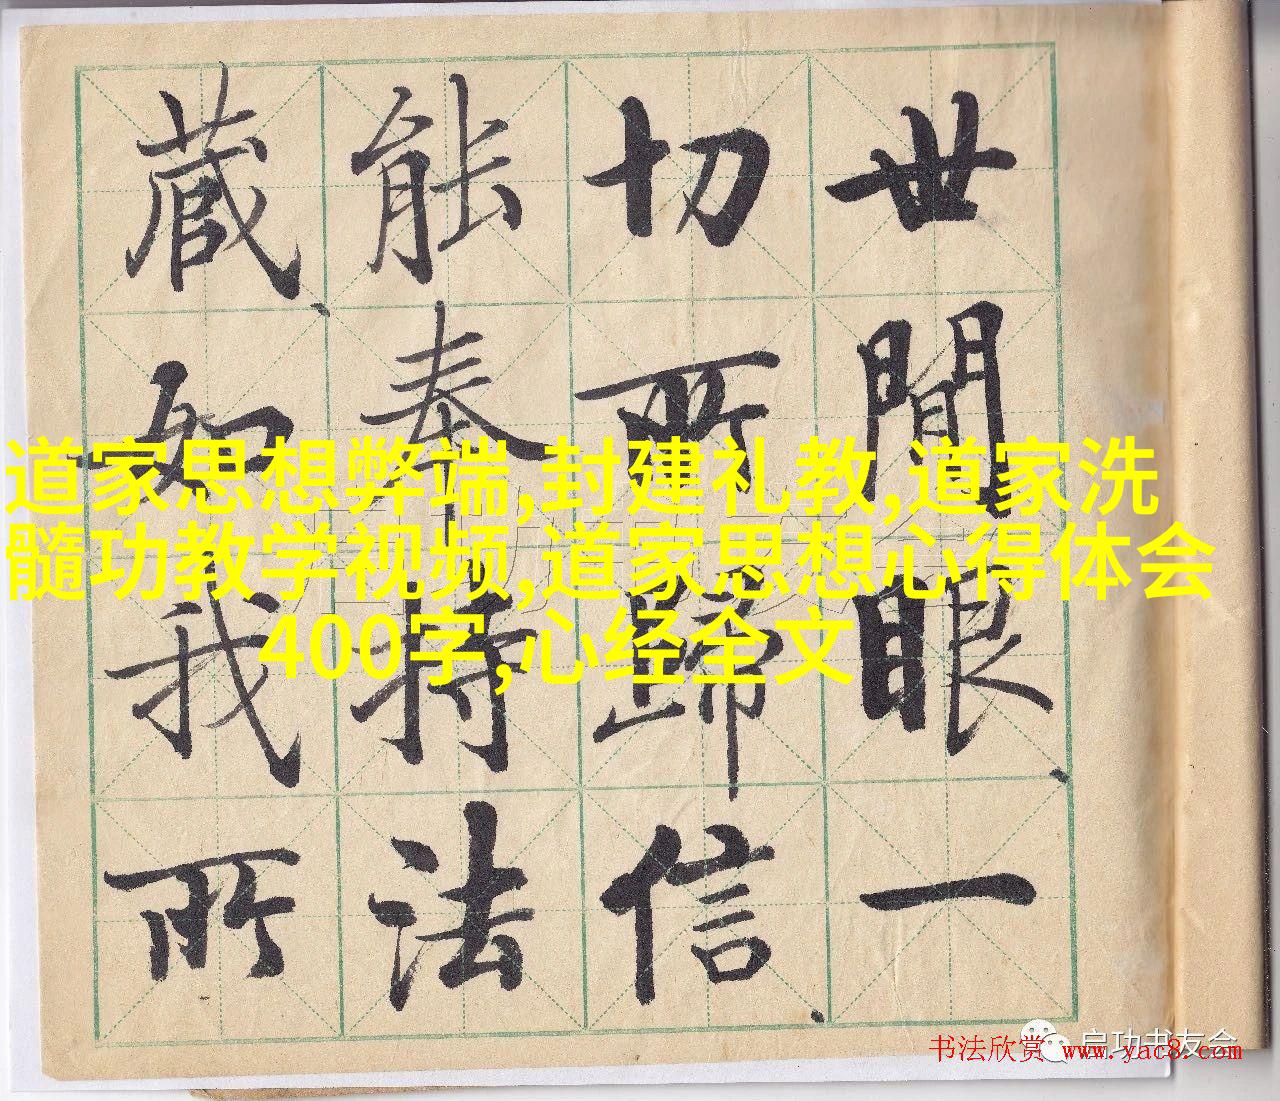 世間眼一
切所歸信
能奉持法
藏如我所
道家思想弊端,封建礼教,道家洗
髓功教学视频,道家思想心得体会
400字,心经全文
启功书友会
书法欣赏 www.yac8.com